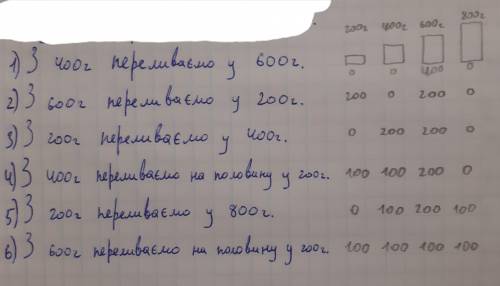 200г 400г 600г 800г
1) З 400г переливаємо у 600г. 0 0 400 0
2) З 600г переливаємо у 200г. 200 0 200 0
3) З 200г переливаємо у 400г. 0 200 200 0
4) З 400г переливаємо на половину у 200г. 100 100 200 0
5) З 200г переливаємо у 800г. 0 100 200 100
6) З 600г переливаємо на половину у 200г. 100 100 100 100